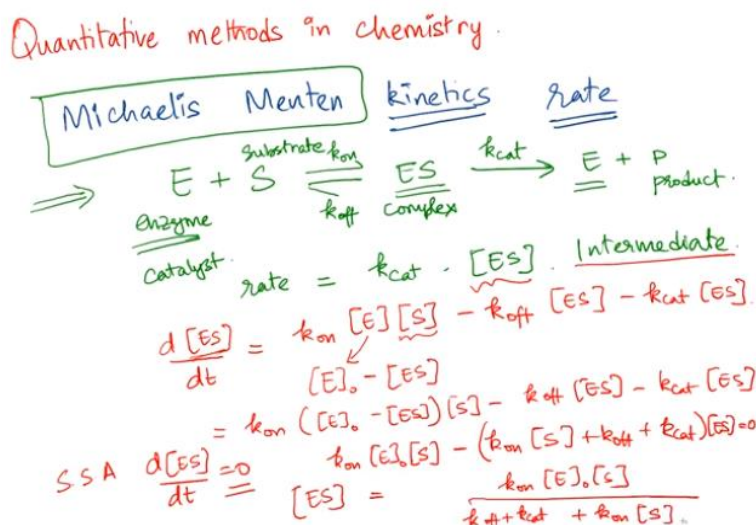 Quantitative methods in chemistry.
Michaelis Menten kinetics rate
E + S ⇌ ES → E + P
substrate kon kcat
enzyme koff complex product.
catalyst.
rate = kcat · [ES]. Intermediate.
d[ES]/dt = kon [E][S] - koff [ES] - kcat [ES].
[E]₀ - [ES]
= kon ([E]₀ - [ES])[S] - koff [ES] - kcat [ES]
kon [E]₀[S] - (kon [S] + koff + kcat)[ES]=0
SSA d[ES]/dt = 0
[ES] = kon [E]₀[S] / koff + kcat + kon [S].